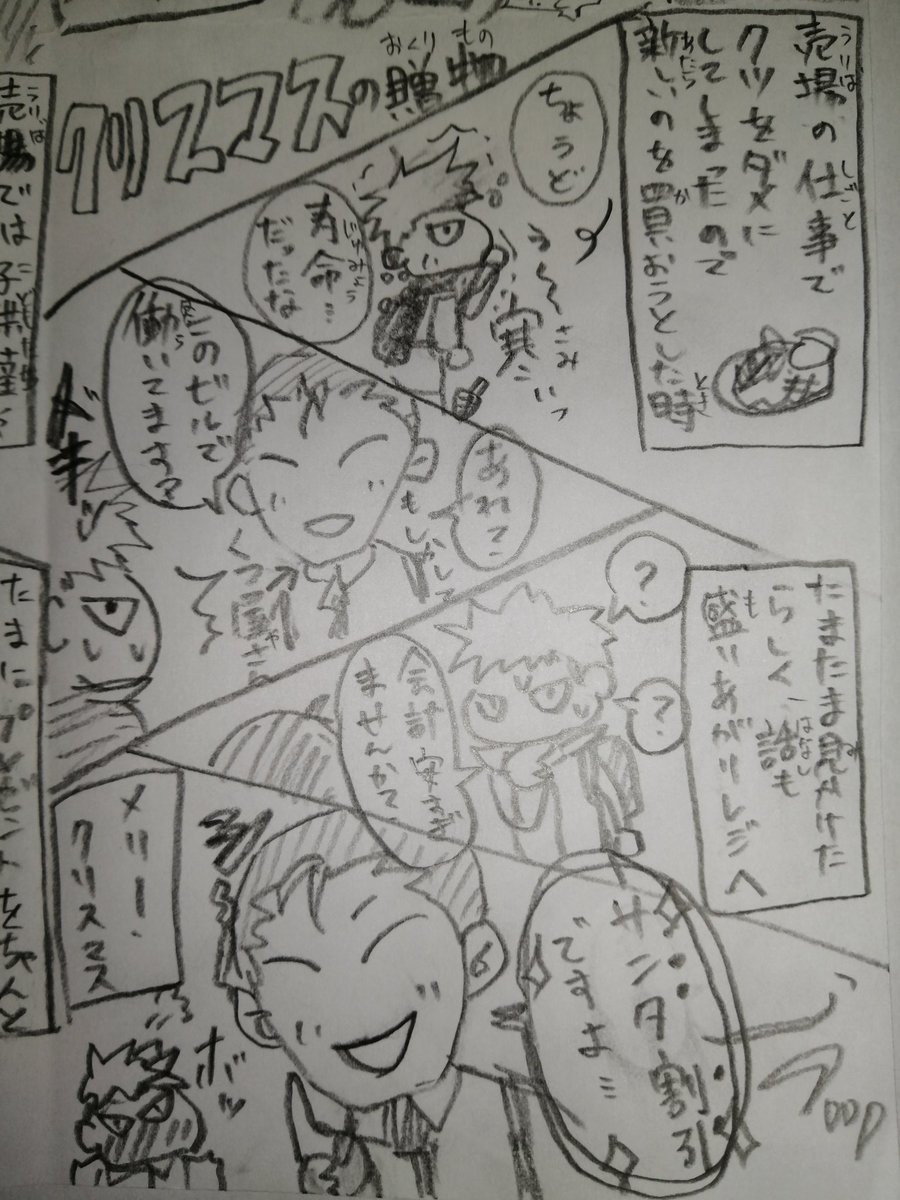 クリスマスの贈物
おくりもの
売場の仕事で
うりば
しごと
クツをダメに
してしまったので
新しいのを買おうとした時
あたら
か
とき
ちょうど
寿命…
じゅみょう
だったな
う〜〜
寒ーいっ
さみ
あれ?
もしかして
このビルで
働いてます?
ドキッ
たまたま見かけた
らしく話も
はなし
盛りあがりレジへ
も
?
?
会計安すぎ
ませんかて
サンタ割引
ですよ…
メリー・
クリスマス
ボッ
売場では子供達が
うりば
たまにプレゼントをちゃんと